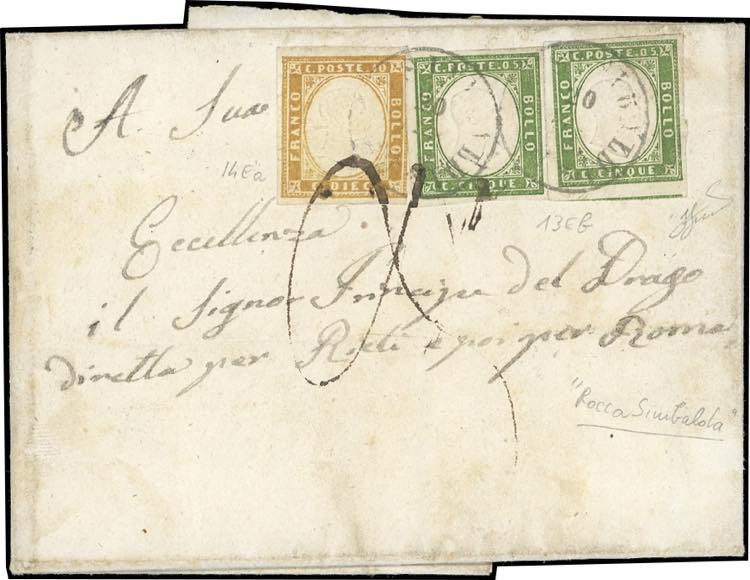 C. POSTE. 10
FRANCO
BOLLO
C. DIECI
C. POSTE. 05
FRANCO
BOLLO
C. CINQUE
C. POSTE. 05
FRANCO
BOLLO
C. CINQUE
A Sua
14Ea
13Eb
Eccellenza
il Signor Principe del Drago
diretta per Rieti e poi per Roma
"Rocca Sinibalda"